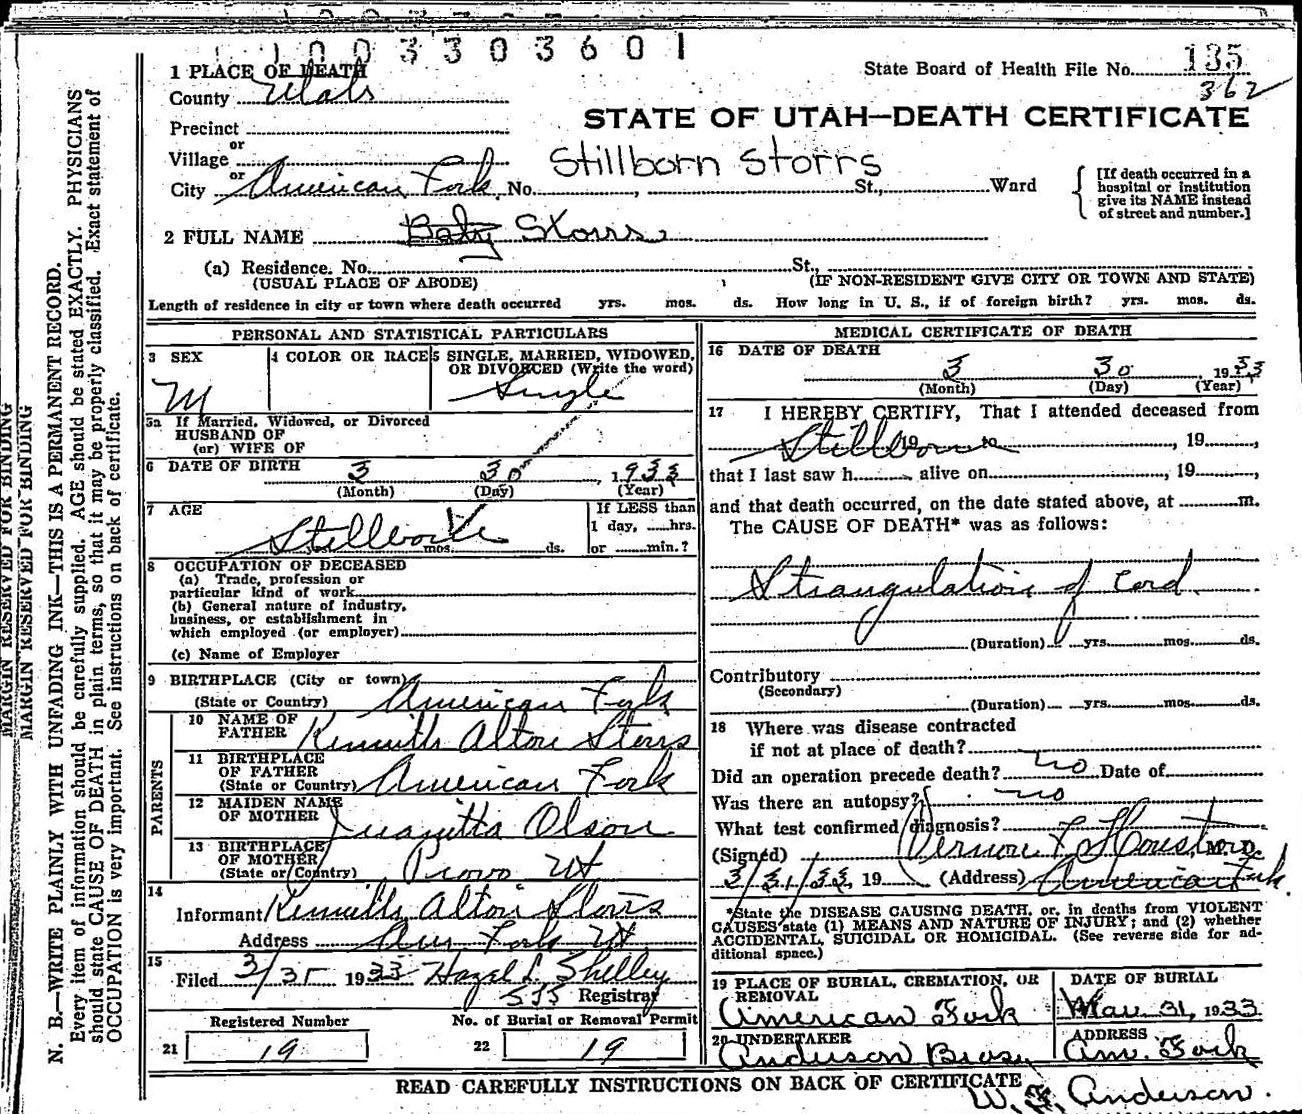 1003303601
1 PLACE OF DEATH
State Board of Health File No. 135
362
County Utah
STATE OF UTAH—DEATH CERTIFICATE
Precinct
or
Village
Stillborn Storrs
or
City American Fork No. , St., Ward
[If death occurred in a hospital or institution give its NAME instead of street and number.]
2 FULL NAME Baby Storrs
(a) Residence. No. St.,
(USUAL PLACE OF ABODE) (IF NON-RESIDENT GIVE CITY OR TOWN AND STATE)
Length of residence in city or town where death occurred yrs. mos. ds. How long in U. S., if of foreign birth? yrs. mos. ds.
PERSONAL AND STATISTICAL PARTICULARS
3 SEX
M
4 COLOR OR RACE
5 SINGLE, MARRIED, WIDOWED, OR DIVORCED (Write the word)
Single
5a If Married, Widowed, or Divorced
HUSBAND OF
(or) WIFE OF
6 DATE OF BIRTH 3 30, 1933
(Month) (Day) (Year)
7 AGE
Stillborn
yrs. mos. ds.
If LESS than
1 day, hrs.
or min.?
8 OCCUPATION OF DECEASED
(a) Trade, profession or
particular kind of work
(b) General nature of industry,
business, or establishment in
which employed (or employer)
(c) Name of Employer
9 BIRTHPLACE (City or town)
(State or Country) American Fork
PARENTS
10 NAME OF
FATHER Kennith Alton Storrs
11 BIRTHPLACE
OF FATHER
(State or Country) American Fork
12 MAIDEN NAME
OF MOTHER Juanitta Olson
13 BIRTHPLACE
OF MOTHER
(State or Country) Provo Ut
14
Informant Kennith Alton Storrs
Address Am Fork Ut
15
Filed 3/31 1933 Hazel L. Shelley
535 Registrar
Registered Number No. of Burial or Removal Permit
21 19 22 19
MEDICAL CERTIFICATE OF DEATH
16 DATE OF DEATH
3 30, 1933
(Month) (Day) (Year)
17 I HEREBY CERTIFY, That I attended deceased from
Stillborn 19 to , 19 ,
that I last saw h alive on , 19 ,
and that death occurred, on the date stated above, at m.
The CAUSE OF DEATH* was as follows:
Strangulation of cord.
(Duration) yrs. mos. ds.
Contributory
(Secondary)
(Duration) yrs. mos. ds.
18 Where was disease contracted
if not at place of death?
Did an operation precede death? no Date of
Was there an autopsy? no
What test confirmed diagnosis?
(Signed) Vernon L Houston, M. D.
3/31/33, 19 (Address) American Fork.
*State the DISEASE CAUSING DEATH, or, in deaths from VIOLENT
CAUSES state (1) MEANS AND NATURE OF INJURY; and (2) whether
ACCIDENTAL, SUICIDAL OR HOMICIDAL. (See reverse side for ad-
ditional space.)
19 PLACE OF BURIAL, CREMATION, OR
REMOVAL
American Fork
DATE OF BURIAL
Mar. 31, 1933
20 UNDERTAKER
Anderson Bros.
ADDRESS
Am. Fork
READ CAREFULLY INSTRUCTIONS ON BACK OF CERTIFICATE
Anderson.
MARGIN RESERVED FOR BINDING
MARGIN RESERVED FOR BINDING
N. B.—WRITE PLAINLY WITH UNFADING INK—THIS IS A PERMANENT RECORD.
Every item of information should be carefully supplied. AGE should be stated EXACTLY. PHYSICIANS
should state CAUSE OF DEATH in plain terms, so that it may be properly classified. Exact statement of
OCCUPATION is very important. See instructions on back of certificate.